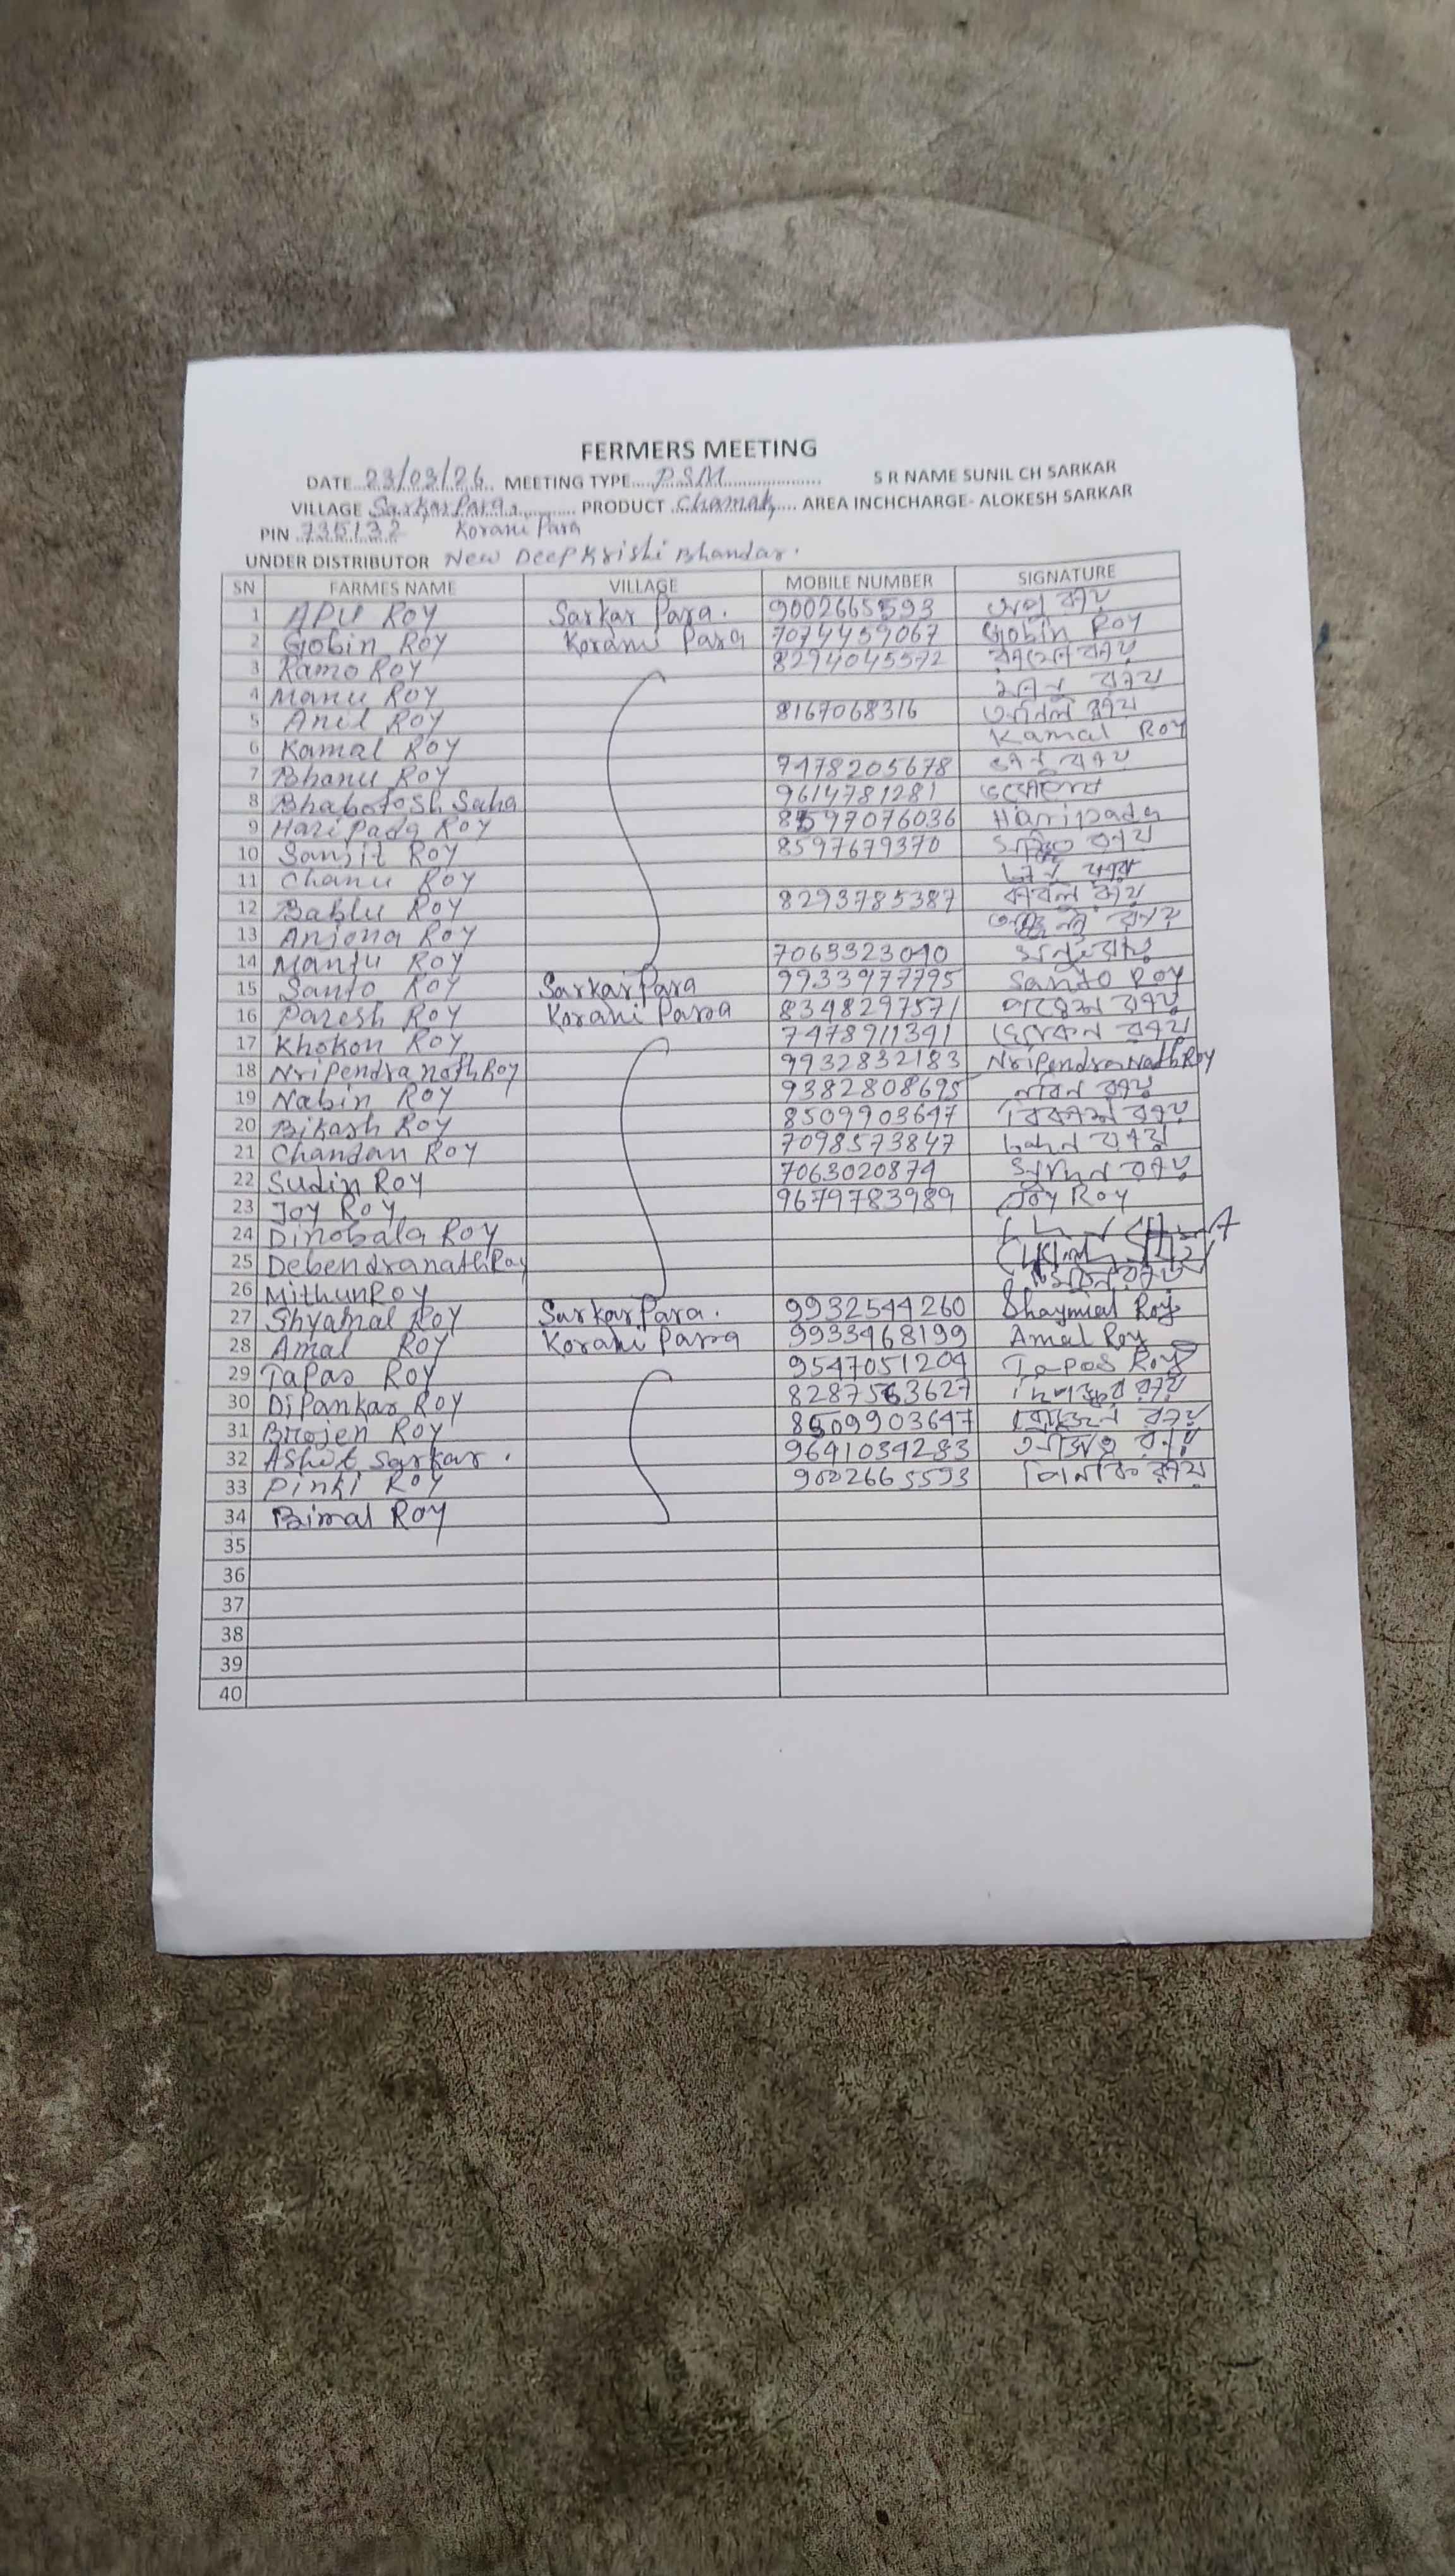 FERMERS MEETING
DATE 23/03/26 MEETING TYPE PSM S R NAME SUNIL CH SARKAR
VILLAGE Sarkar Para, PRODUCT Chamak AREA INCHCHARGE- ALOKESH SARKAR
PIN 735132 Korani Para
UNDER DISTRIBUTOR New Deep Krishi Bhandar.
SN FARMES NAME VILLAGE MOBILE NUMBER SIGNATURE
1 APU ROY Sarkar Para. 9002665593 অপু রায়
2 Gobin ROY Korani Para 7074459067 Gobin Roy
3 Ramo ROY 8294045572 রায়
4 Manu ROY রায়
5 Anil ROY 8167068316 অনিল রায়
6 Kamal ROY Kamal ROY
7 Bhanu ROY 7478205678 ভানু রায়
8 Bhabotosh Saha 9614781281
9 Hari Pada ROY 8597076036 Harripada
10 Sanjit ROY 8597679370 রায়
11 Chanu ROY রায়
12 Bablu ROY 8293785387 রায়
13 Anjona ROY রায়
14 Mantu ROY 7063323040
15 Santo ROY Sarkar Para 9933977795 Santo Roy
16 Paresh ROY Korani Para 8348297571 রায়
17 Khokon ROY 7478911391 রায়
18 Nripendra nath Roy 9932832183 Nripendra Nath Roy
19 Nabin ROY 9382808695 নবিন রায়
20 Bikash ROY 8509903647 বিকাশ রায়
21 Chandan ROY 7098573847 রায়
22 Sudin ROY 7063020874 রায়
23 Joy ROY 9679783989 Joy Roy
24 Dinobala ROY
25 Debendranath Roy
26 Mithun ROY
27 Shyamal ROY Sarkar Para. 9932544260 Shaymal Roy
28 Amal ROY Korani Para 9933468199 Amal Roy
29 Tapas ROY 9547051204 Tapos Roy
30 Dipankar ROY 8287563627 রায়
31 Brojen ROY 8509903647 রায়
32 Ashit Sarkar. 9641034283 রায়
33 Pinki ROY 9002665593 পিনকি রায়
34 Bimal ROY
35
36
37
38
39
40